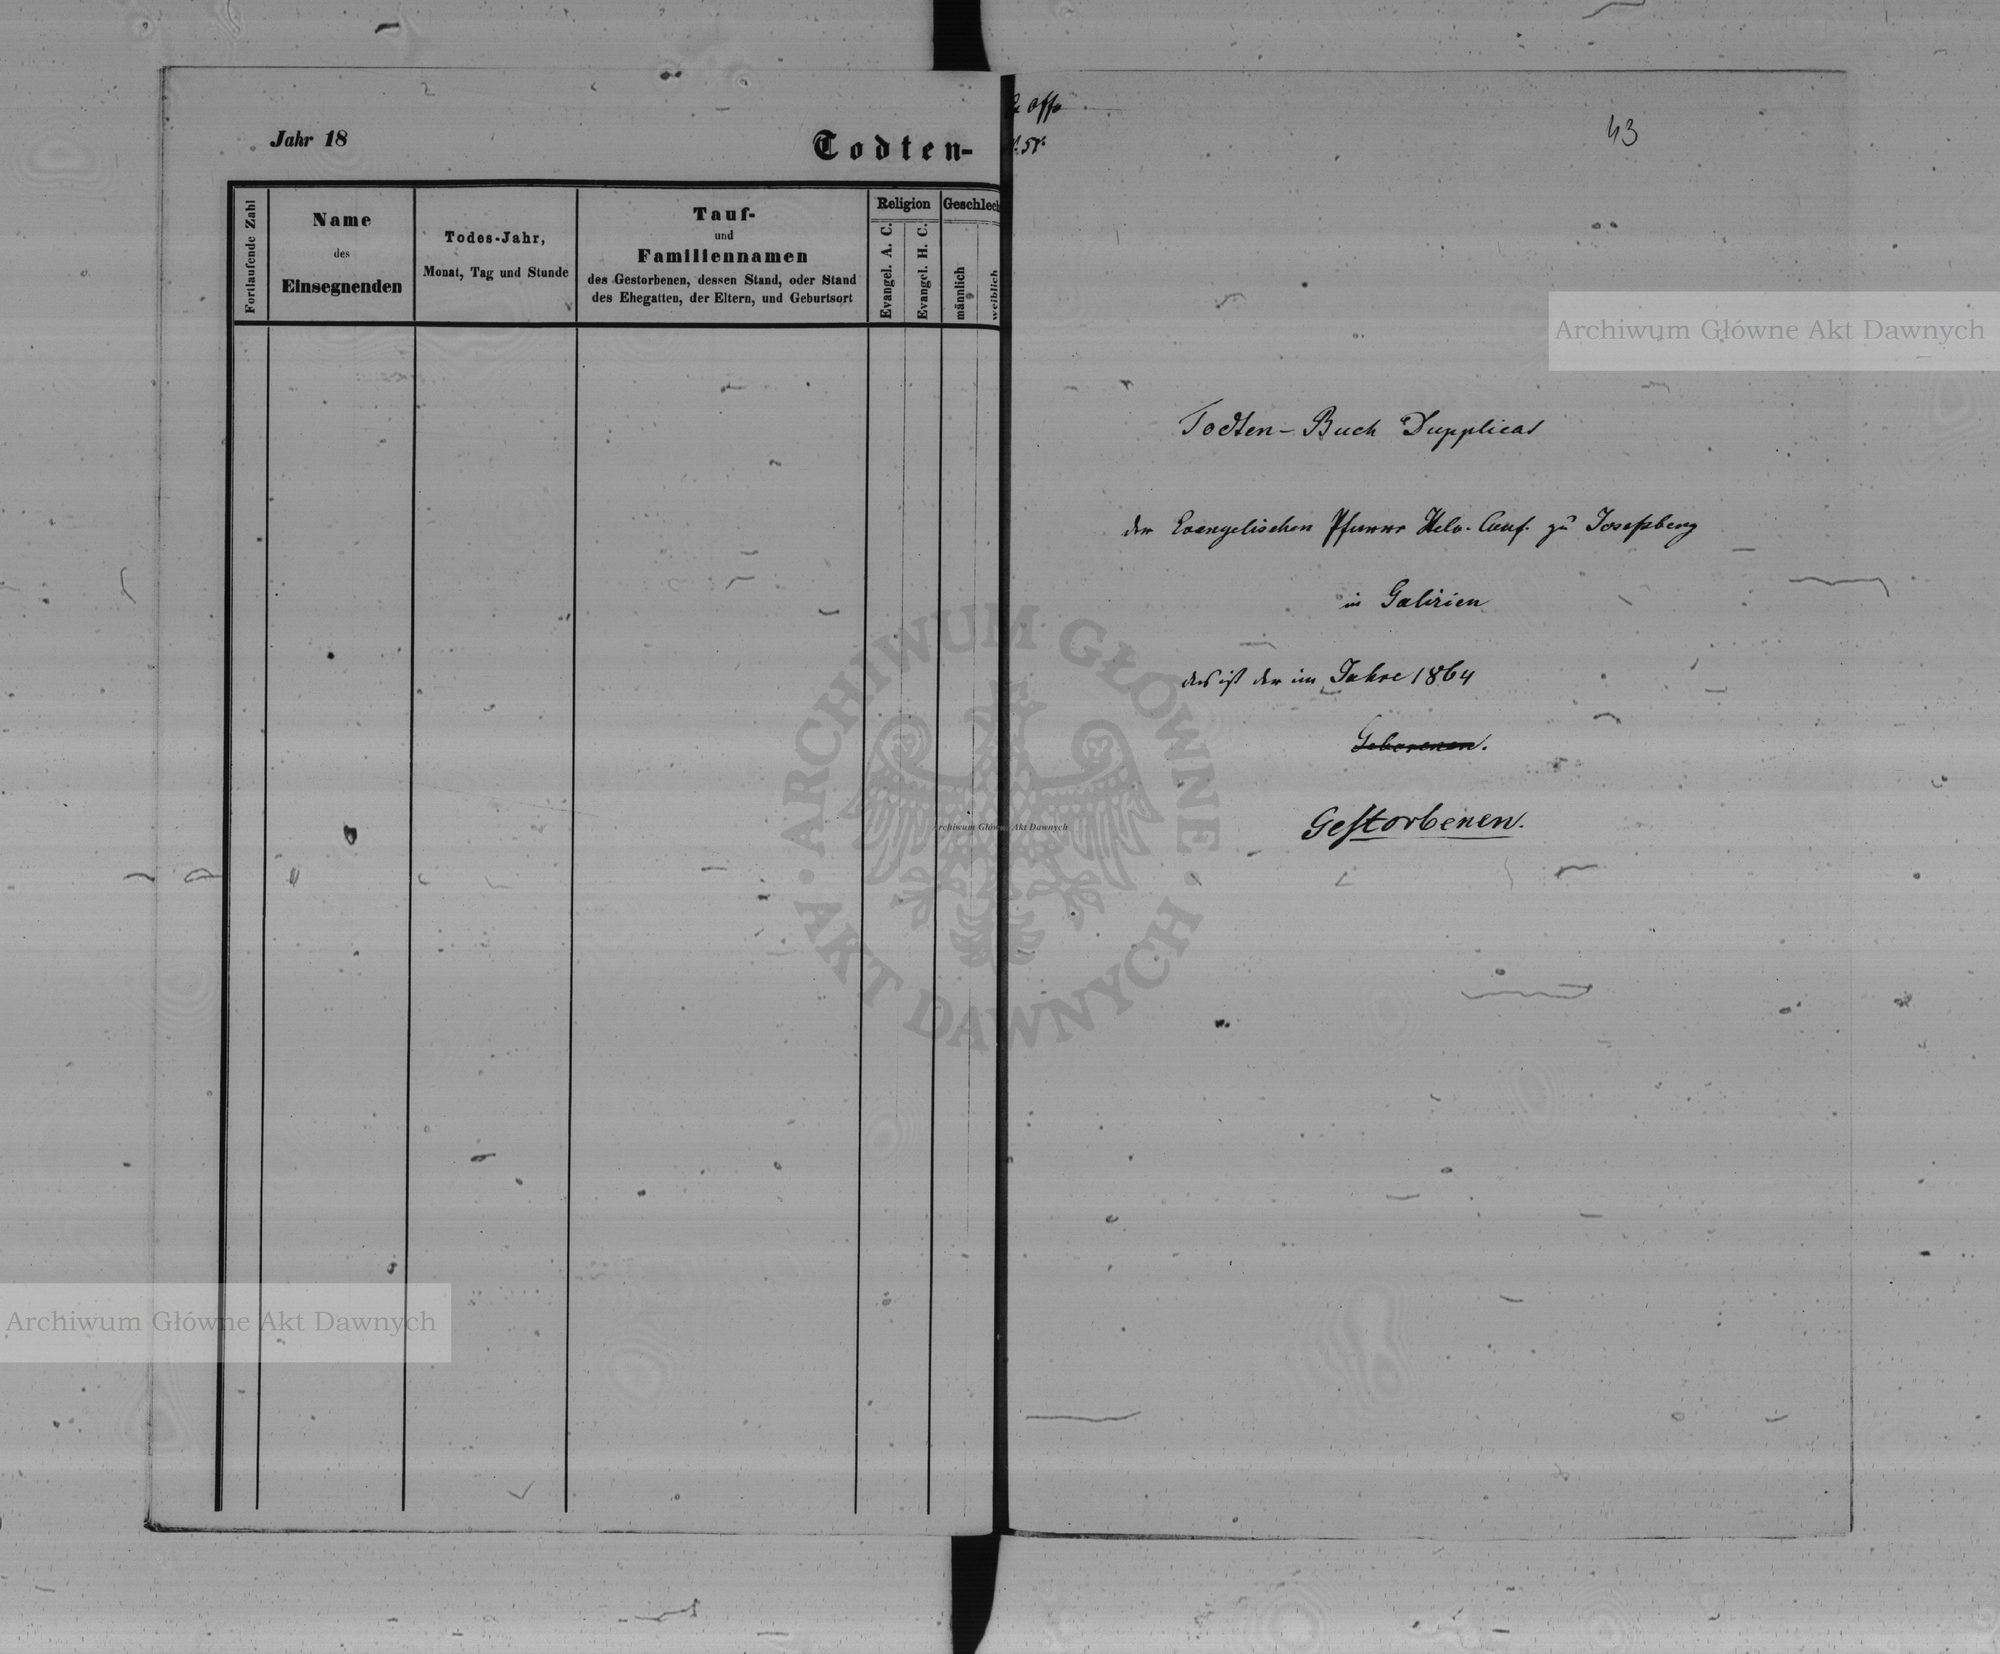 Jahr 18
Todten-
Fortlaufende Zahl
Name
des
Einsegnenden
Todes-Jahr,
Monat, Tag und Stunde
Tauf-
und
Familiennamen
des Gestorbenen, dessen Stand, oder Stand
des Ehegatten, der Eltern, und Geburtsort
Religion
Evangel. A. C.
Evangel. H. C.
Geschlech
männlich
weiblich
43
Todten-Buch Dupplicat
der Evangelischen Pfarre Helv. Conf. zu Josefsberg
in Galizien
das ist der im Jahre 1864
Geborenen.
Gestorbenen.
Archiwum Główne Akt Dawnych
ARCHIWUM GŁÓWNE
AKT DAWNYCH
Archiwum Główne Akt Dawnych
Archiwum Główne Akt Dawnych